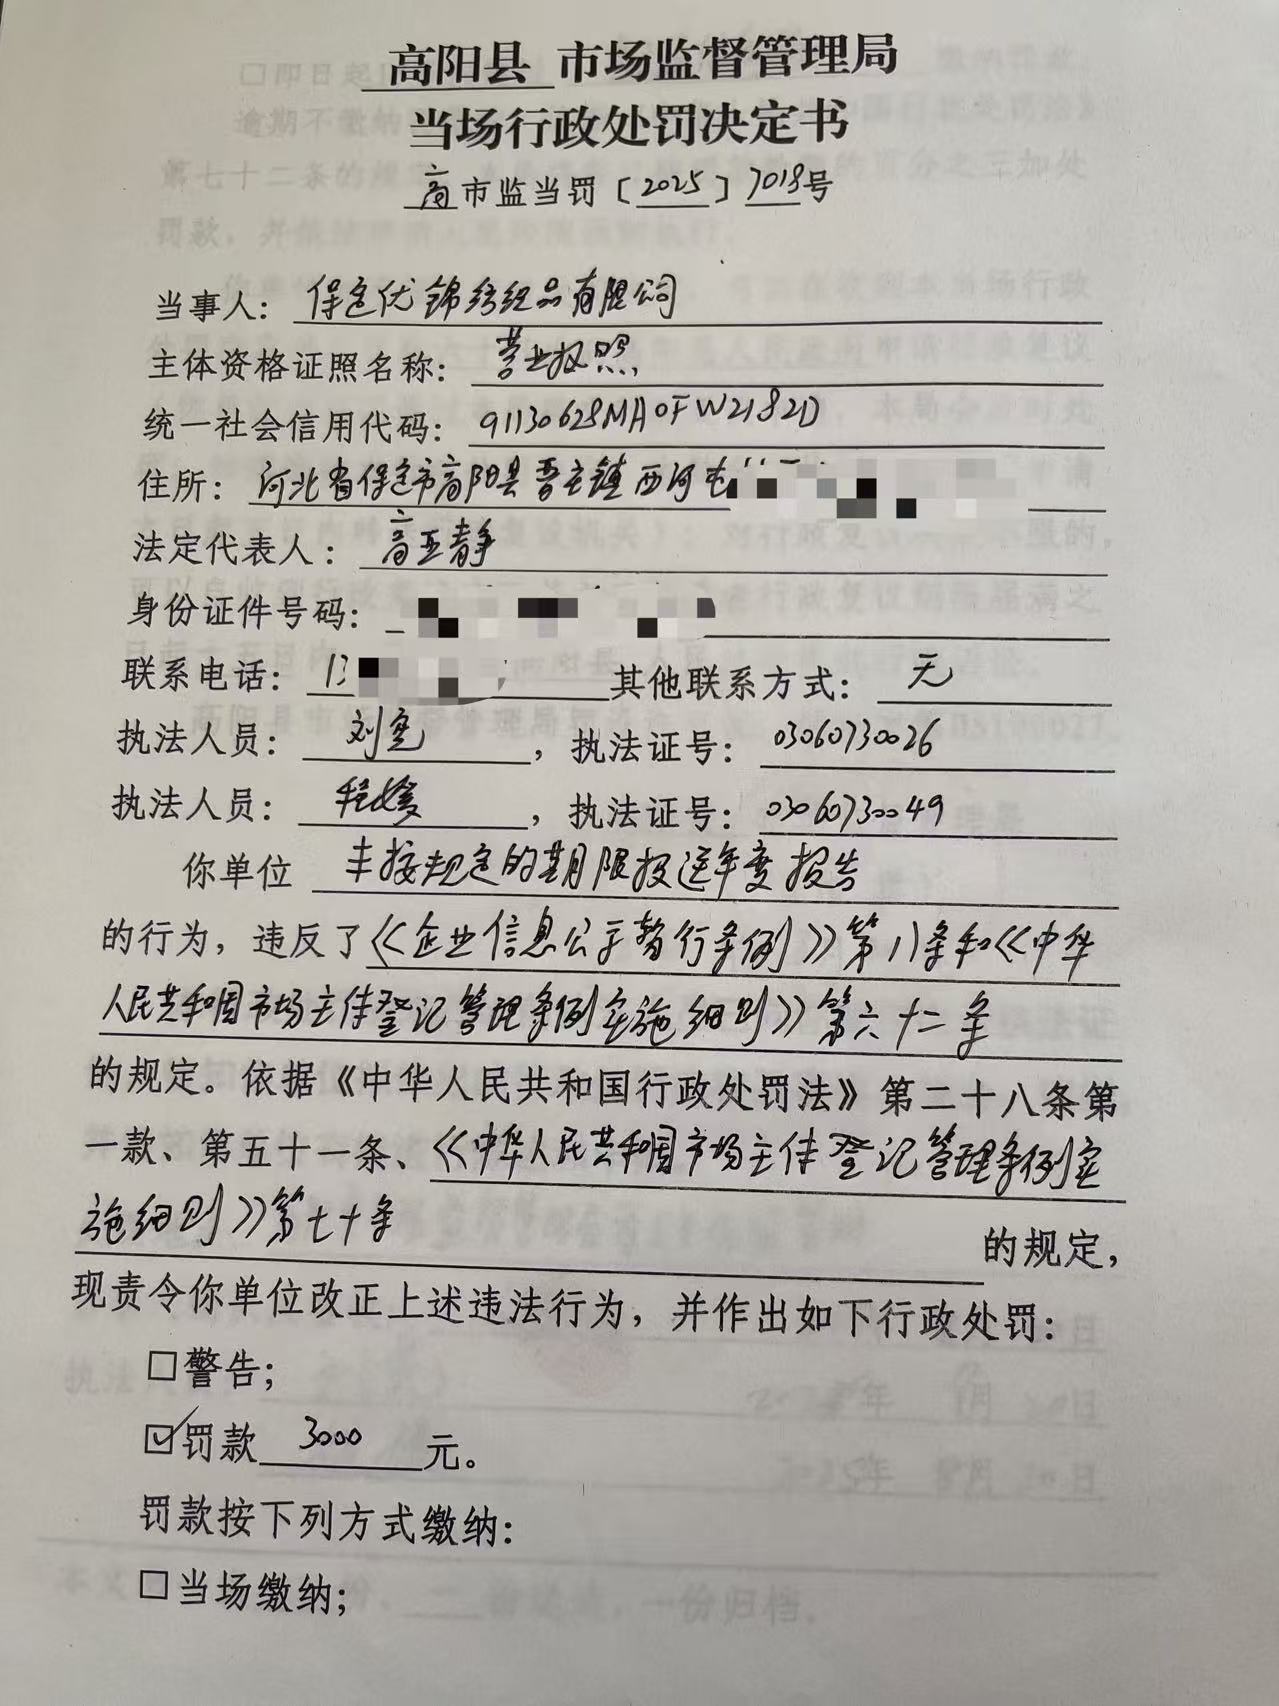 高阳县 市场监督管理局
当场行政处罚决定书
高市监当罚〔2025〕7018号
当事人：保定优锦纺织品有限公司
主体资格证照名称：营业执照
统一社会信用代码：91130628MA0FW2182D
住所：河北省保定市高阳县晋庄镇西河屯
法定代表人：高亚静
身份证件号码：
联系电话：13 其他联系方式：无
执法人员：刘宽，执法证号：03060730026
执法人员：程媛，执法证号：03060730049
你单位 未按规定的期限报送年度报告
的行为，违反了《企业信息公示暂行条例》第八条和《中华
人民共和国市场主体登记管理条例实施细则》第六十二条
的规定。依据《中华人民共和国行政处罚法》第二十八条第
一款、第五十一条、《中华人民共和国市场主体登记管理条例实
施细则》第七十条 的规定，
现责令你单位改正上述违法行为，并作出如下行政处罚：
□警告；
☑罚款 3000 元。
罚款按下列方式缴纳：
□当场缴纳；